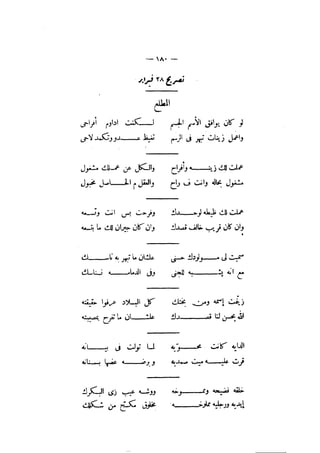 — ١٨٠ —
تصريح ٢٨ فبراير
المطلع
لو كان يوافق الأسم الجسم لـكنت اداوم أفراحى
واعمل زينات تبهر فى الرسم تغيظ عـدو وتكمد لاحى
عملت لك زينـه وأفراح والكل عن عمـلك مشغول
مشغول بحاله وانت ف واح والعقل م الحـاصل مخبول
عملت لك ظيطه لوحـدك وفرحت بس انت ولـه
وان كان قريب خالف قصدك وان كان جيران لك ما به
سميت لى مـولودك حسنى علشان ما تهر به ناسـك
مع انه يشـبه للجنى وفى الدمامـه نسنـاسك
زيفت إسمه ومن بختك كل البـلاد عرفوا حقيقته
الله يحسن لنا قصـدك علشـان ما تفرح بمصيبته
الدايه كانت محـويه لمـا تولت فى يـانه
قرت عليـه ميت عدية و برضـه عضها بسنانه
خلقه فضيحه ومـوخه ووشـه عيب زى البـكرك
إيديه ورجليه مملوخـه مخلوق مكسح من شـكلك